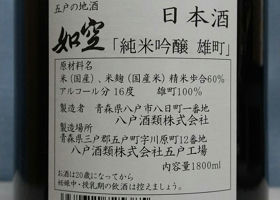 五戸の地酒
日本酒
如空
「純米吟醸 雄町」
原材料名
米(国産)、米麹(国産米)精米歩合60%
アルコール分 16度 雄町100%
製造者 青森県八戸市八日町一番地
八戸酒類株式会社
製造場所
青森県三戸郡五戸町字川原町12番地
八戸酒類株式会社五戸工場
お酒は20歳になってから
妊娠中・授乳期の飲酒は控えましょう。
内容量1800ml